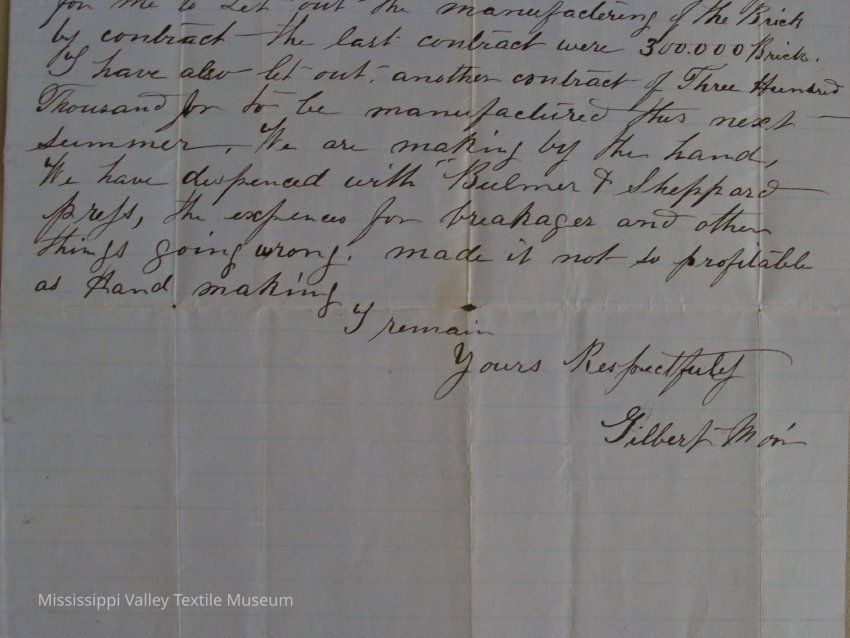 for me to Let out the manufactering of the Brick
by contract the last contract were 300.000 Brick.
I have also let out, another contract of Three Hundred
Thousand for to be manufactured this next
summer. We are making by the hand,
We have dispenced with "Bulmer & Sheppard
press, the expences for breakages and other
things going wrong. made it not so profitable
as Hand making
I remain
Yours Respectfuly
Gilbert
Mississippi Valley Textile Museum